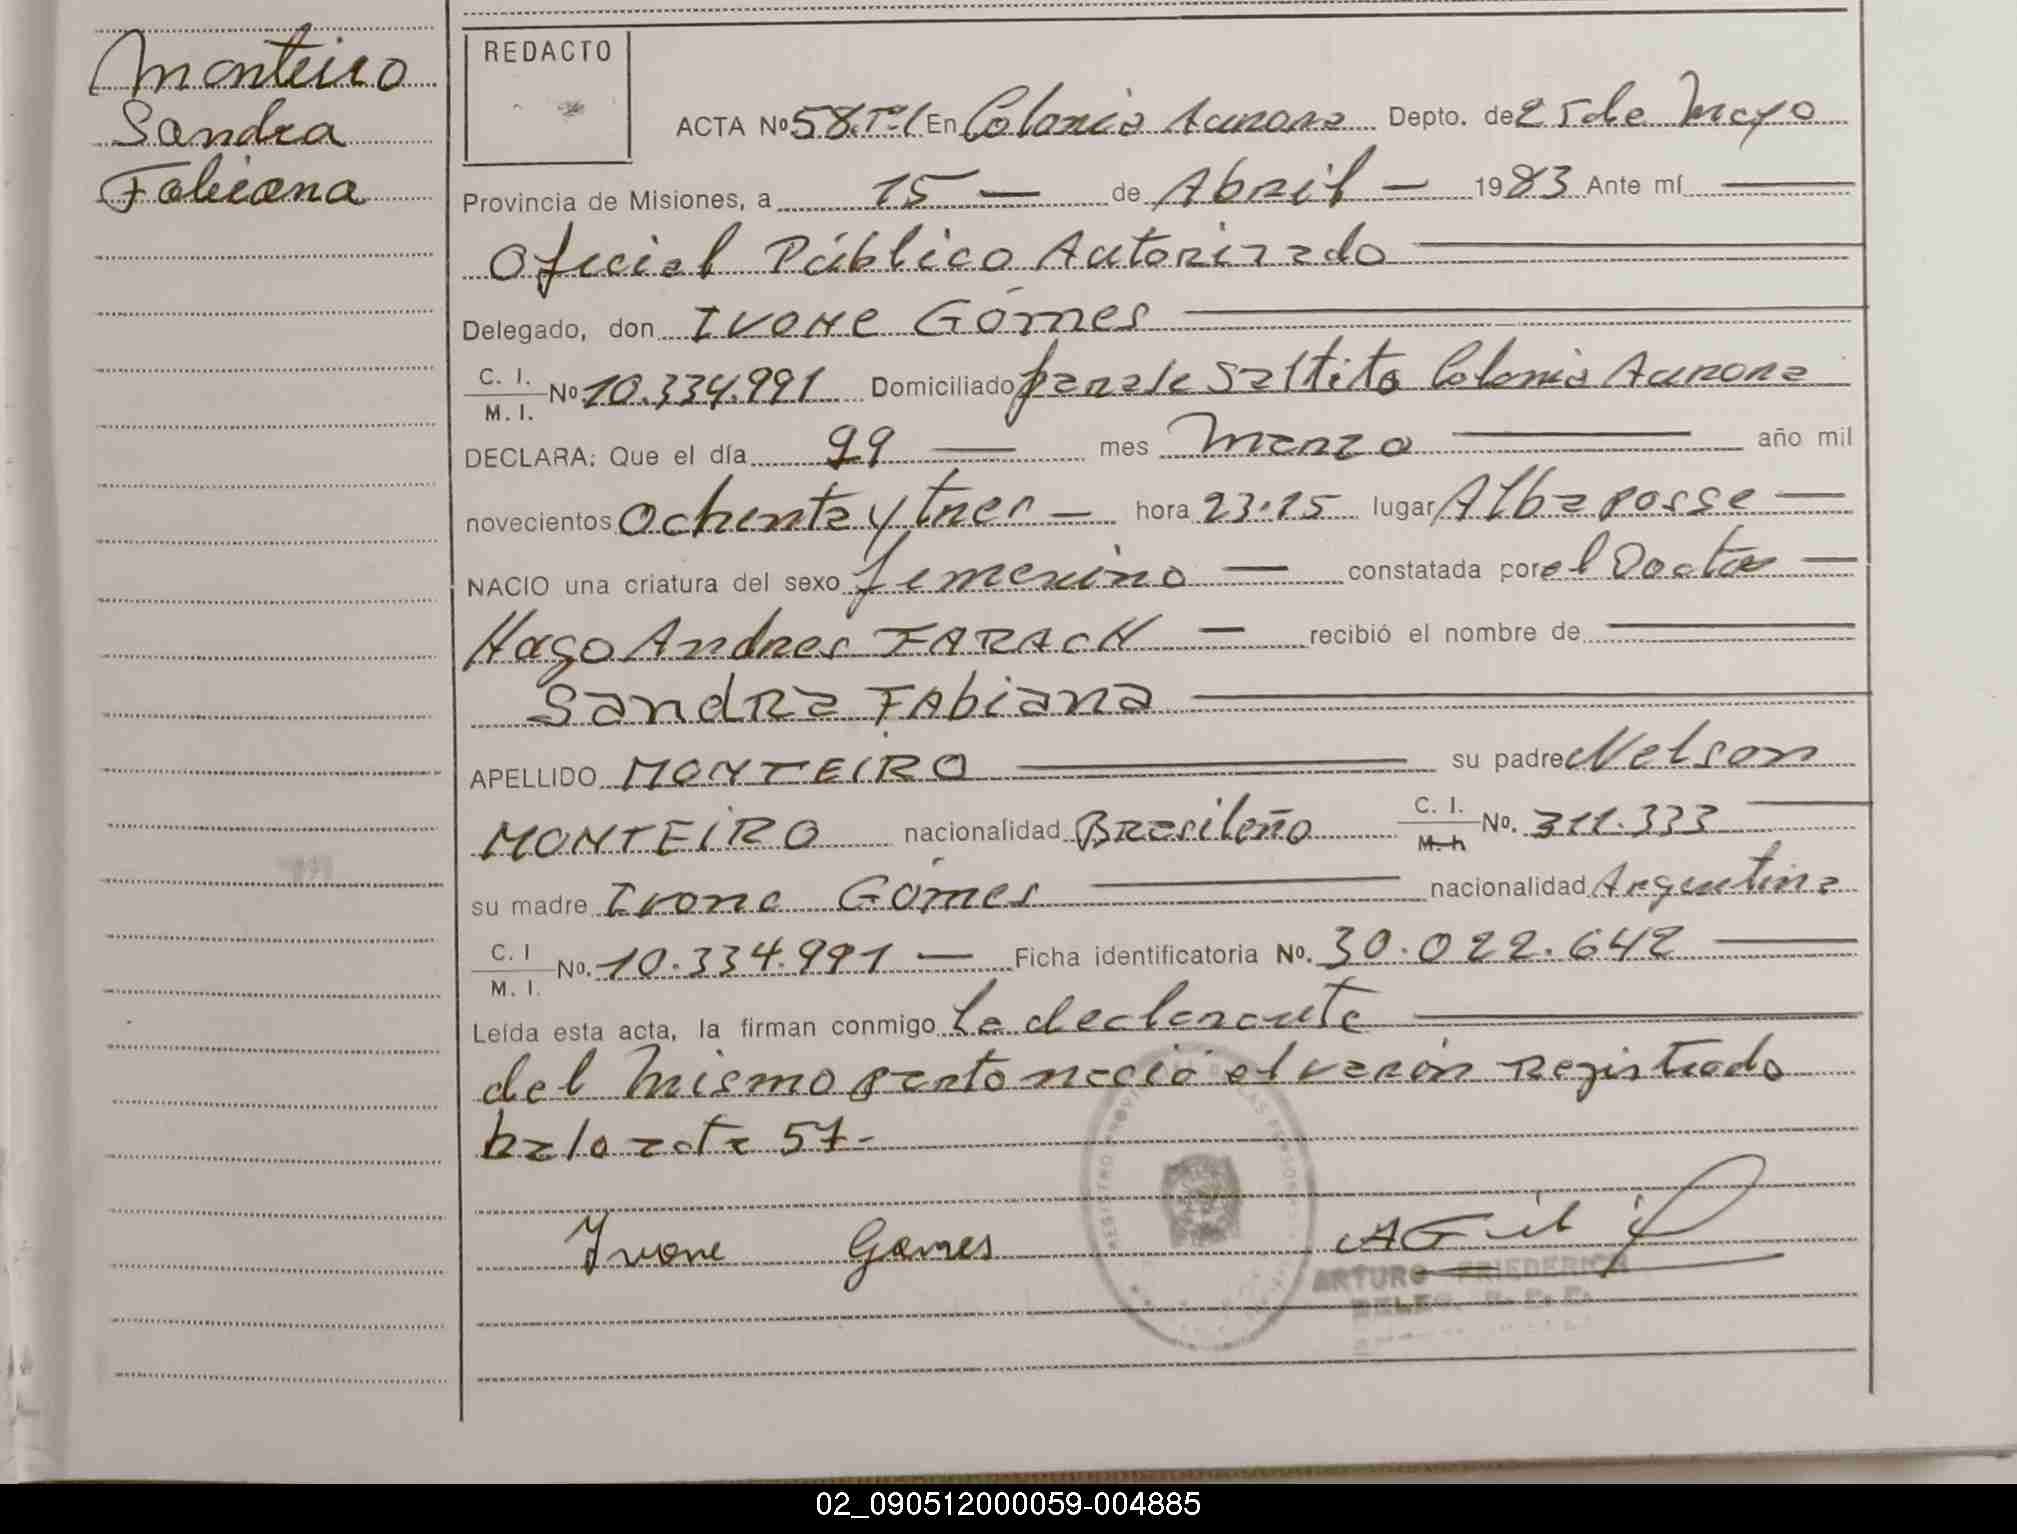 Monteiro
Sandra
Fabiana
REDACTO
ACTA Nº 58.Tº1 En Colonia Aurora Depto. de 25 de Mayo
Provincia de Misiones, a 15 — de Abril — 1983 Ante mí
Oficial Público Autorizado
Delegado, don Ivone Gómes
C. I. / M. I. Nº 10.334.991 Domiciliado Saltito Colonia Aurora
DECLARA: Que el día mes Marzo año mil
novecientos ochenta y tres — hora 23.15 lugar Alba posse —
NACIO una criatura del sexo femenino — constatada por el Doctor —
Hugo Andres FARACH — recibió el nombre de
Sandra Fabiana
APELLIDO MONTEIRO su padre Nelson
MONTEIRO nacionalidad Brasileño C. I. / M. I. No. 311.333
su madre Ivone Gómes nacionalidad Argentina
C. I / M. I. No. 10.334.991 — Ficha identificatoria No. 30.022.642
Leída esta acta, la firman conmigo la declarante
del mismo parto nació el varón Registrado
bajo acta 57-
Yvone Gomes
ARTURO FRIEDERICH
02_090512000059-004885